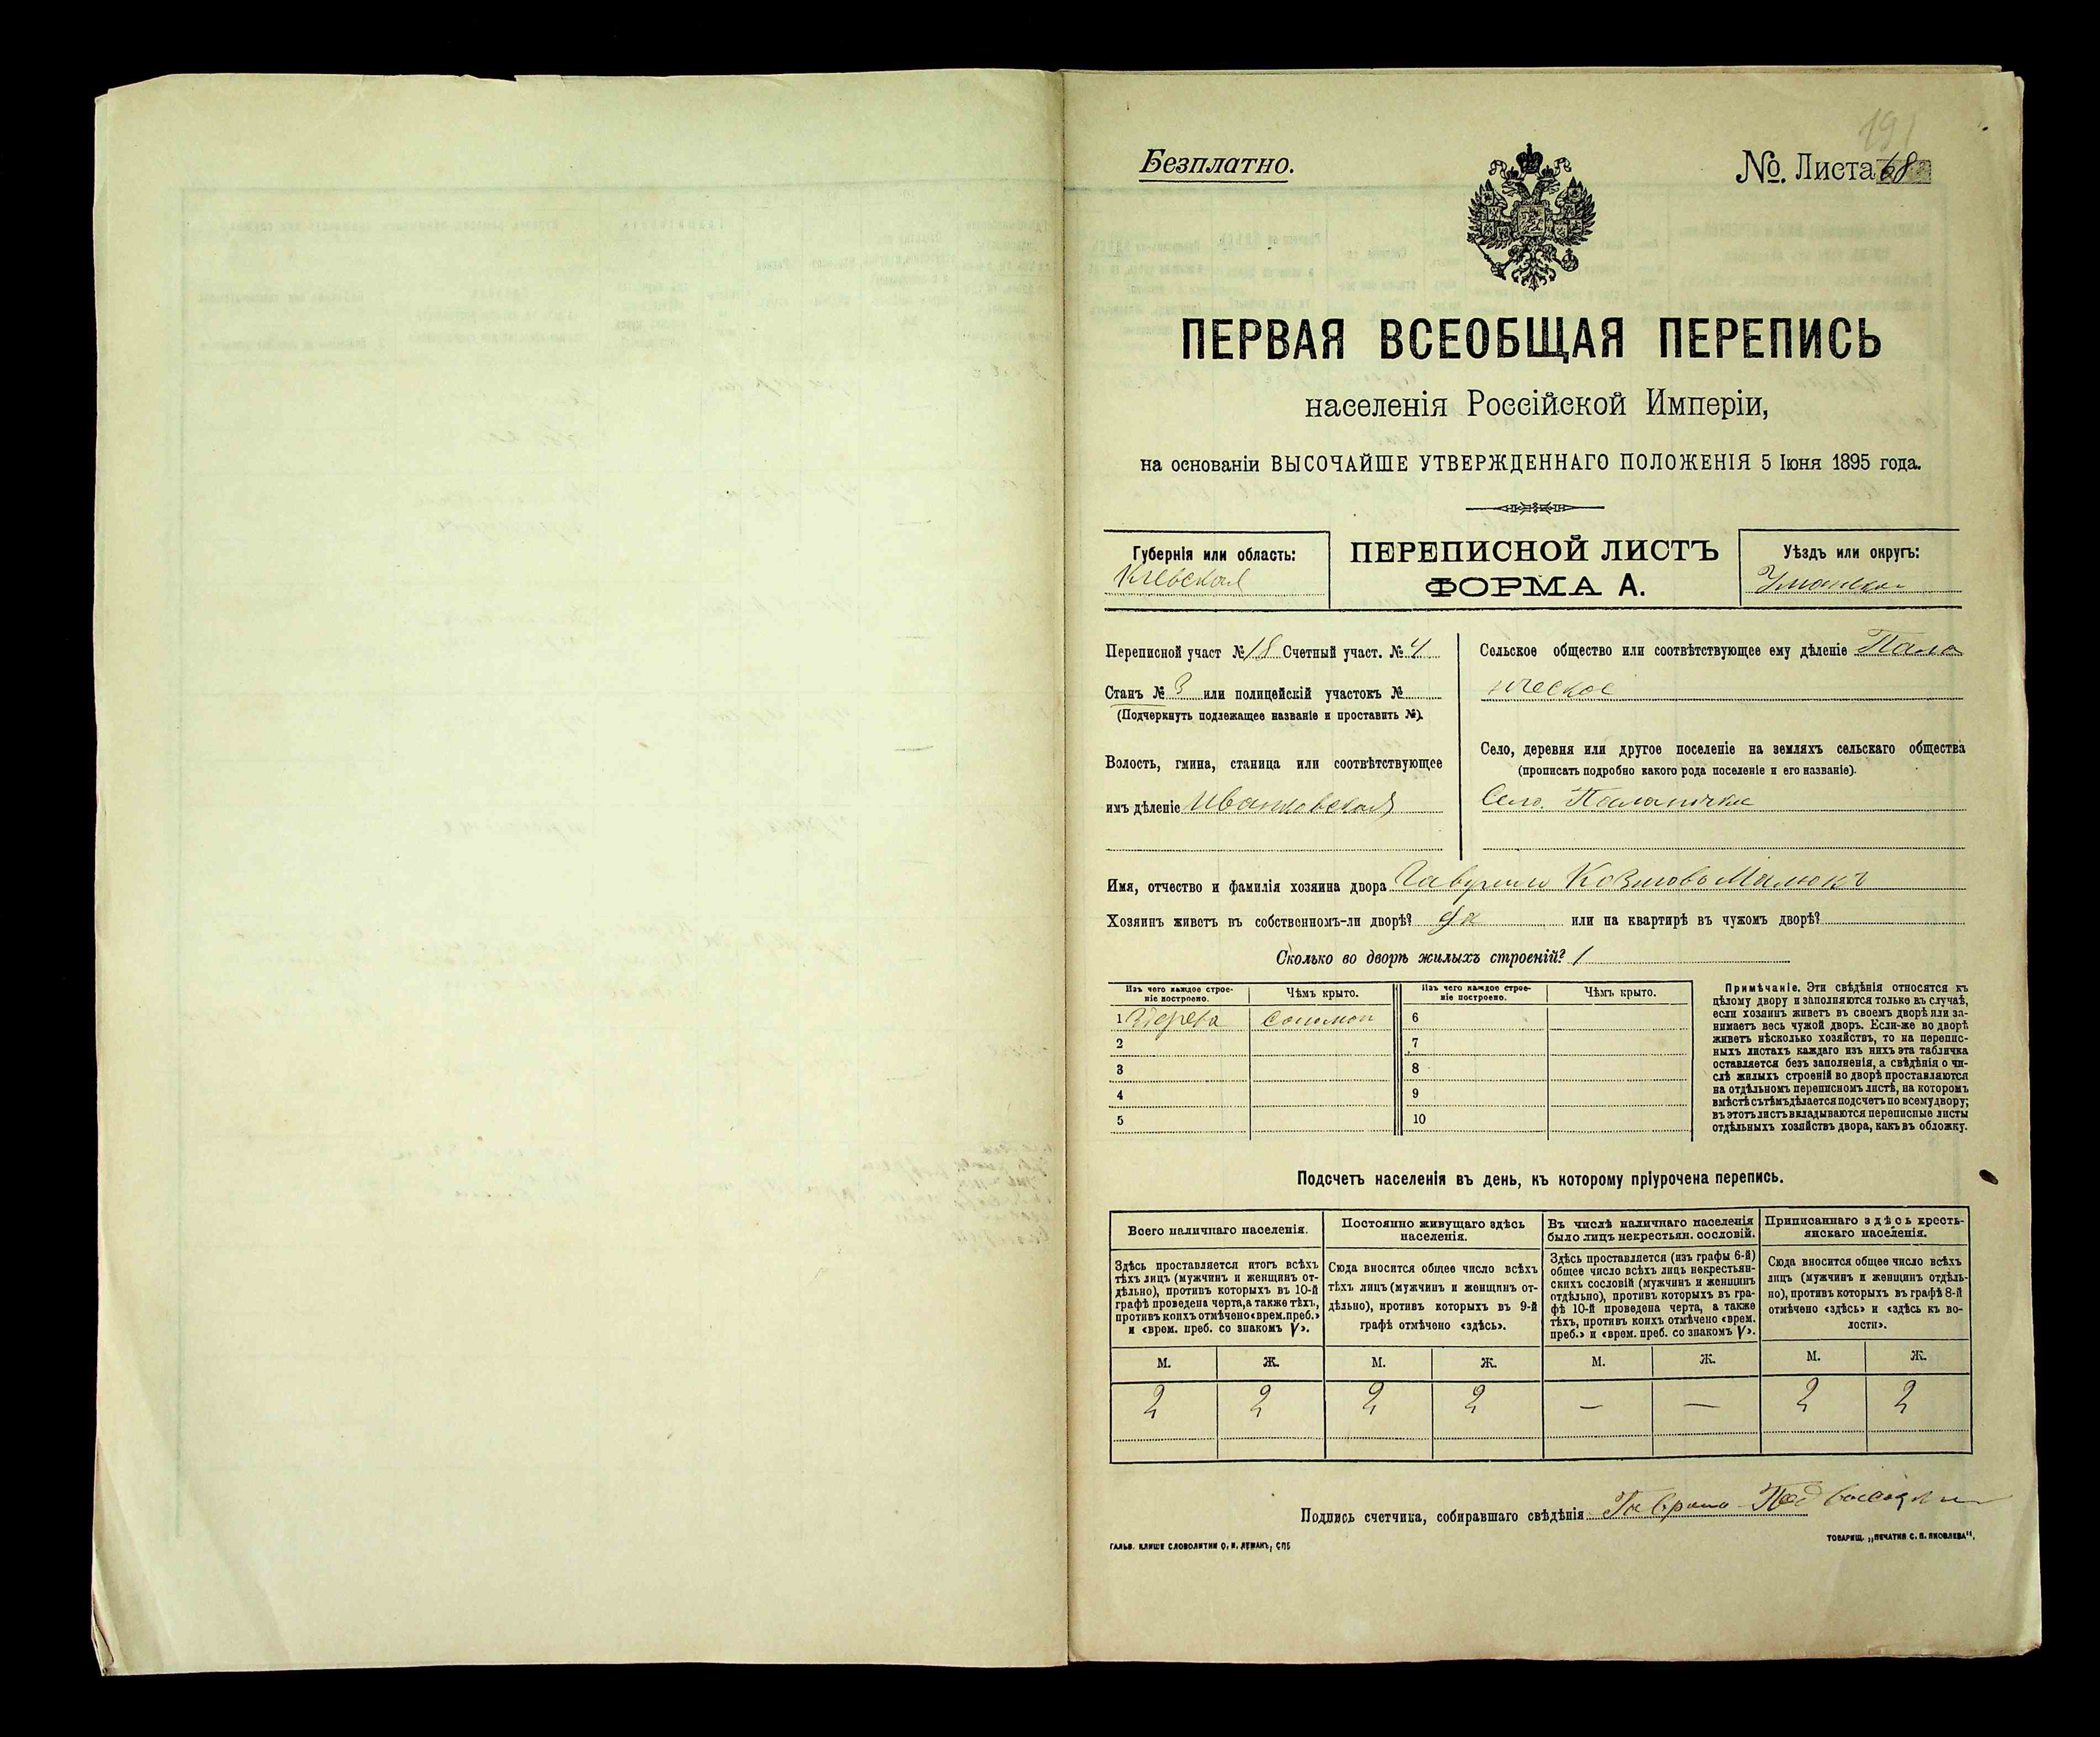 191
Безплатно.
№. Листа 68
ПЕРВАЯ ВСЕОБЩАЯ ПЕРЕПИСЬ
населенія Россійской Имперіи,
на основаніи ВЫСОЧАЙШЕ УТВЕРЖДЕННАГО ПОЛОЖЕНІЯ 5 Іюня 1895 года.
Губернія или область:
Кіевская
ПЕРЕПИСНОЙ ЛИСТЪ
ФОРМА А.
Уѣздъ или округъ:
Уманскій
Переписной участ № 18 Счетный участ. № 4
Станъ № 3 или полицейскій участокъ №
(Подчеркнуть подлежащее названіе и проставить №).
Волость, гмина, станица или соотвѣтствующее
имъ дѣленіе Иваньковская
Сельское общество или соотвѣтствующее ему дѣленіе Пала
ническое
Село, деревня или другое поселеніе на земляхъ сельскаго общества
(прописать подробно какого рода поселеніе и его названіе).
Село. Паланичка
Имя, отчество и фамилія хозяина двора Гаврило Малюкъ
Хозяинъ живетъ въ собственномъ-ли дворѣ? Да или на квартирѣ въ чужомъ дворѣ?
Сколько во дворѣ жилыхъ строеній? 1
Изъ чего каждое строе-
ніе построено.
Чѣмъ крыто.
Изъ чего каждое строе-
ніе построено.
Чѣмъ крыто.
1 Здерева Соломой 6
2 7
3 8
4 9
5 10
Примѣчаніе. Эти свѣдѣнія относятся къ
цѣлому двору и заполняются только въ случаѣ,
если хозяинъ живетъ въ своемъ дворѣ или за-
нимаетъ весь чужой дворъ. Если-же во дворѣ
живетъ нѣсколько хозяйствъ, то на перепис-
ныхъ листахъ каждаго изъ нихъ эта табличка
оставляется безъ заполненія, а свѣдѣнія о чи-
слѣ жилыхъ строеній во дворѣ проставляются
на отдѣльномъ переписномъ листѣ, на которомъ
вмѣстѣ съ тѣмъ дѣлается подсчетъ по всему двору;
въ этотъ листъ вкладываются переписные листы
отдѣльныхъ хозяйствъ двора, какъ въ обложку.
Подсчетъ населенія въ день, къ которому пріурочена перепись.
Всего наличнаго населенія.
Здѣсь проставляется итогъ всѣхъ
тѣхъ лицъ (мужчинъ и женщинъ от-
дѣльно), противъ которыхъ въ 10-й
графѣ проведена черта, а также тѣхъ,
противъ коихъ отмѣчено «врем. преб.»
и «врем. преб. со знакомъ V».
Постоянно живущаго здѣсь
населенія.
Сюда вносится общее число всѣхъ
тѣхъ лицъ (мужчинъ и женщинъ от-
дѣльно), противъ которыхъ въ 9-й
графѣ отмѣчено «здѣсь».
Въ числѣ наличнаго населенія
было лицъ некрестьян. сословій.
Здѣсь проставляется (изъ графы 6-й)
общее число всѣхъ лицъ некрестьян-
скихъ сословій (мужчинъ и женщинъ
отдѣльно), противъ которыхъ въ гра-
фѣ 10-й проведена черта, а также
тѣхъ, противъ коихъ отмѣчено «врем.
преб.» и «врем. преб. со знакомъ V».
Приписаннаго здѣсь кресть-
янскаго населенія.
Сюда вносится общее число всѣхъ
лицъ (мужчинъ и женщинъ отдѣль-
но), противъ которыхъ въ графѣ 8-й
отмѣчено «здѣсь» и «здѣсь къ во-
лости».
М. Ж. М. Ж. М. Ж. М. Ж.
2 2 2 2 — — 2 2
Подпись счетчика, собиравшаго свѣдѣнія
ГАЛЬВ. КЛИШЕ СЛОВОЛИТНИ О. И. ЛЕМАНЪ, СПБ
ТОВАРИЩ. „ПЕЧАТНЯ С. П. ЯКОВЛЕВА“.